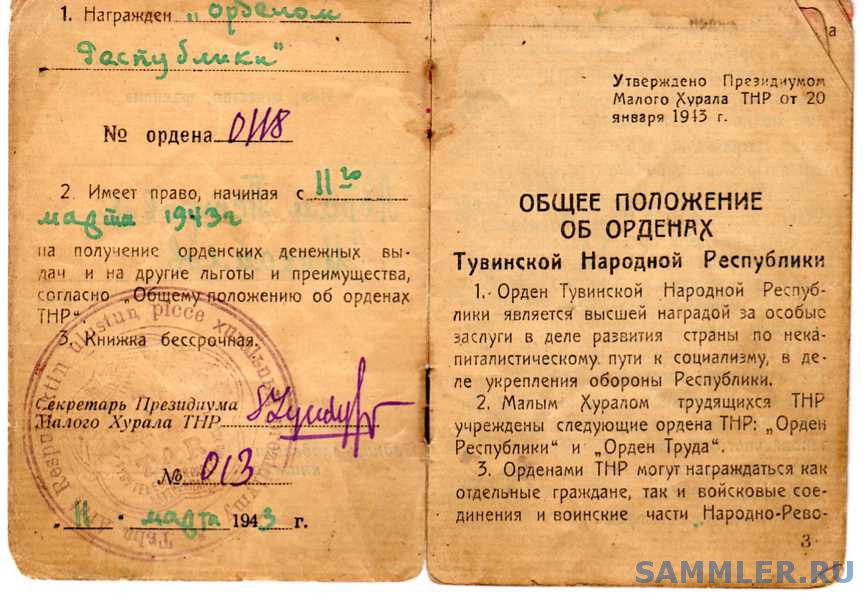 1. Награжден „орденом
Республики"
№ ордена 0118
2. Имеет право, начиная с 11го
марта 1943г
на получение орденских денежных вы-
дач и на другие льготы и преимущества,
согласно „Общему положению об орденах
ТНР".
3. Книжка бессрочная.
Секретарь Президиума
Малого Хурала ТНР
№ 013
„11" марта 1943 г.
Утверждено Президиумом
Малого Хурала ТНР от 20
января 1943 г.
ОБЩЕЕ ПОЛОЖЕНИЕ
ОБ ОРДЕНАХ
Тувинской Народной Республики
1. Орден Тувинской Народной Респуб-
лики является высшей наградой за особые
заслуги в деле развития страны по нека-
питалистическому пути к социализму, в де-
ле укрепления обороны Республики.
2. Малым Хуралом трудящихся ТНР
учреждены следующие ордена ТНР: „Орден
Республики" и „Орден Труда".
3. Орденами ТНР могут награждаться как
отдельные граждане, так и войсковые сое-
динения и воинские части Народно-Рево-
3
SAMMLER.RU